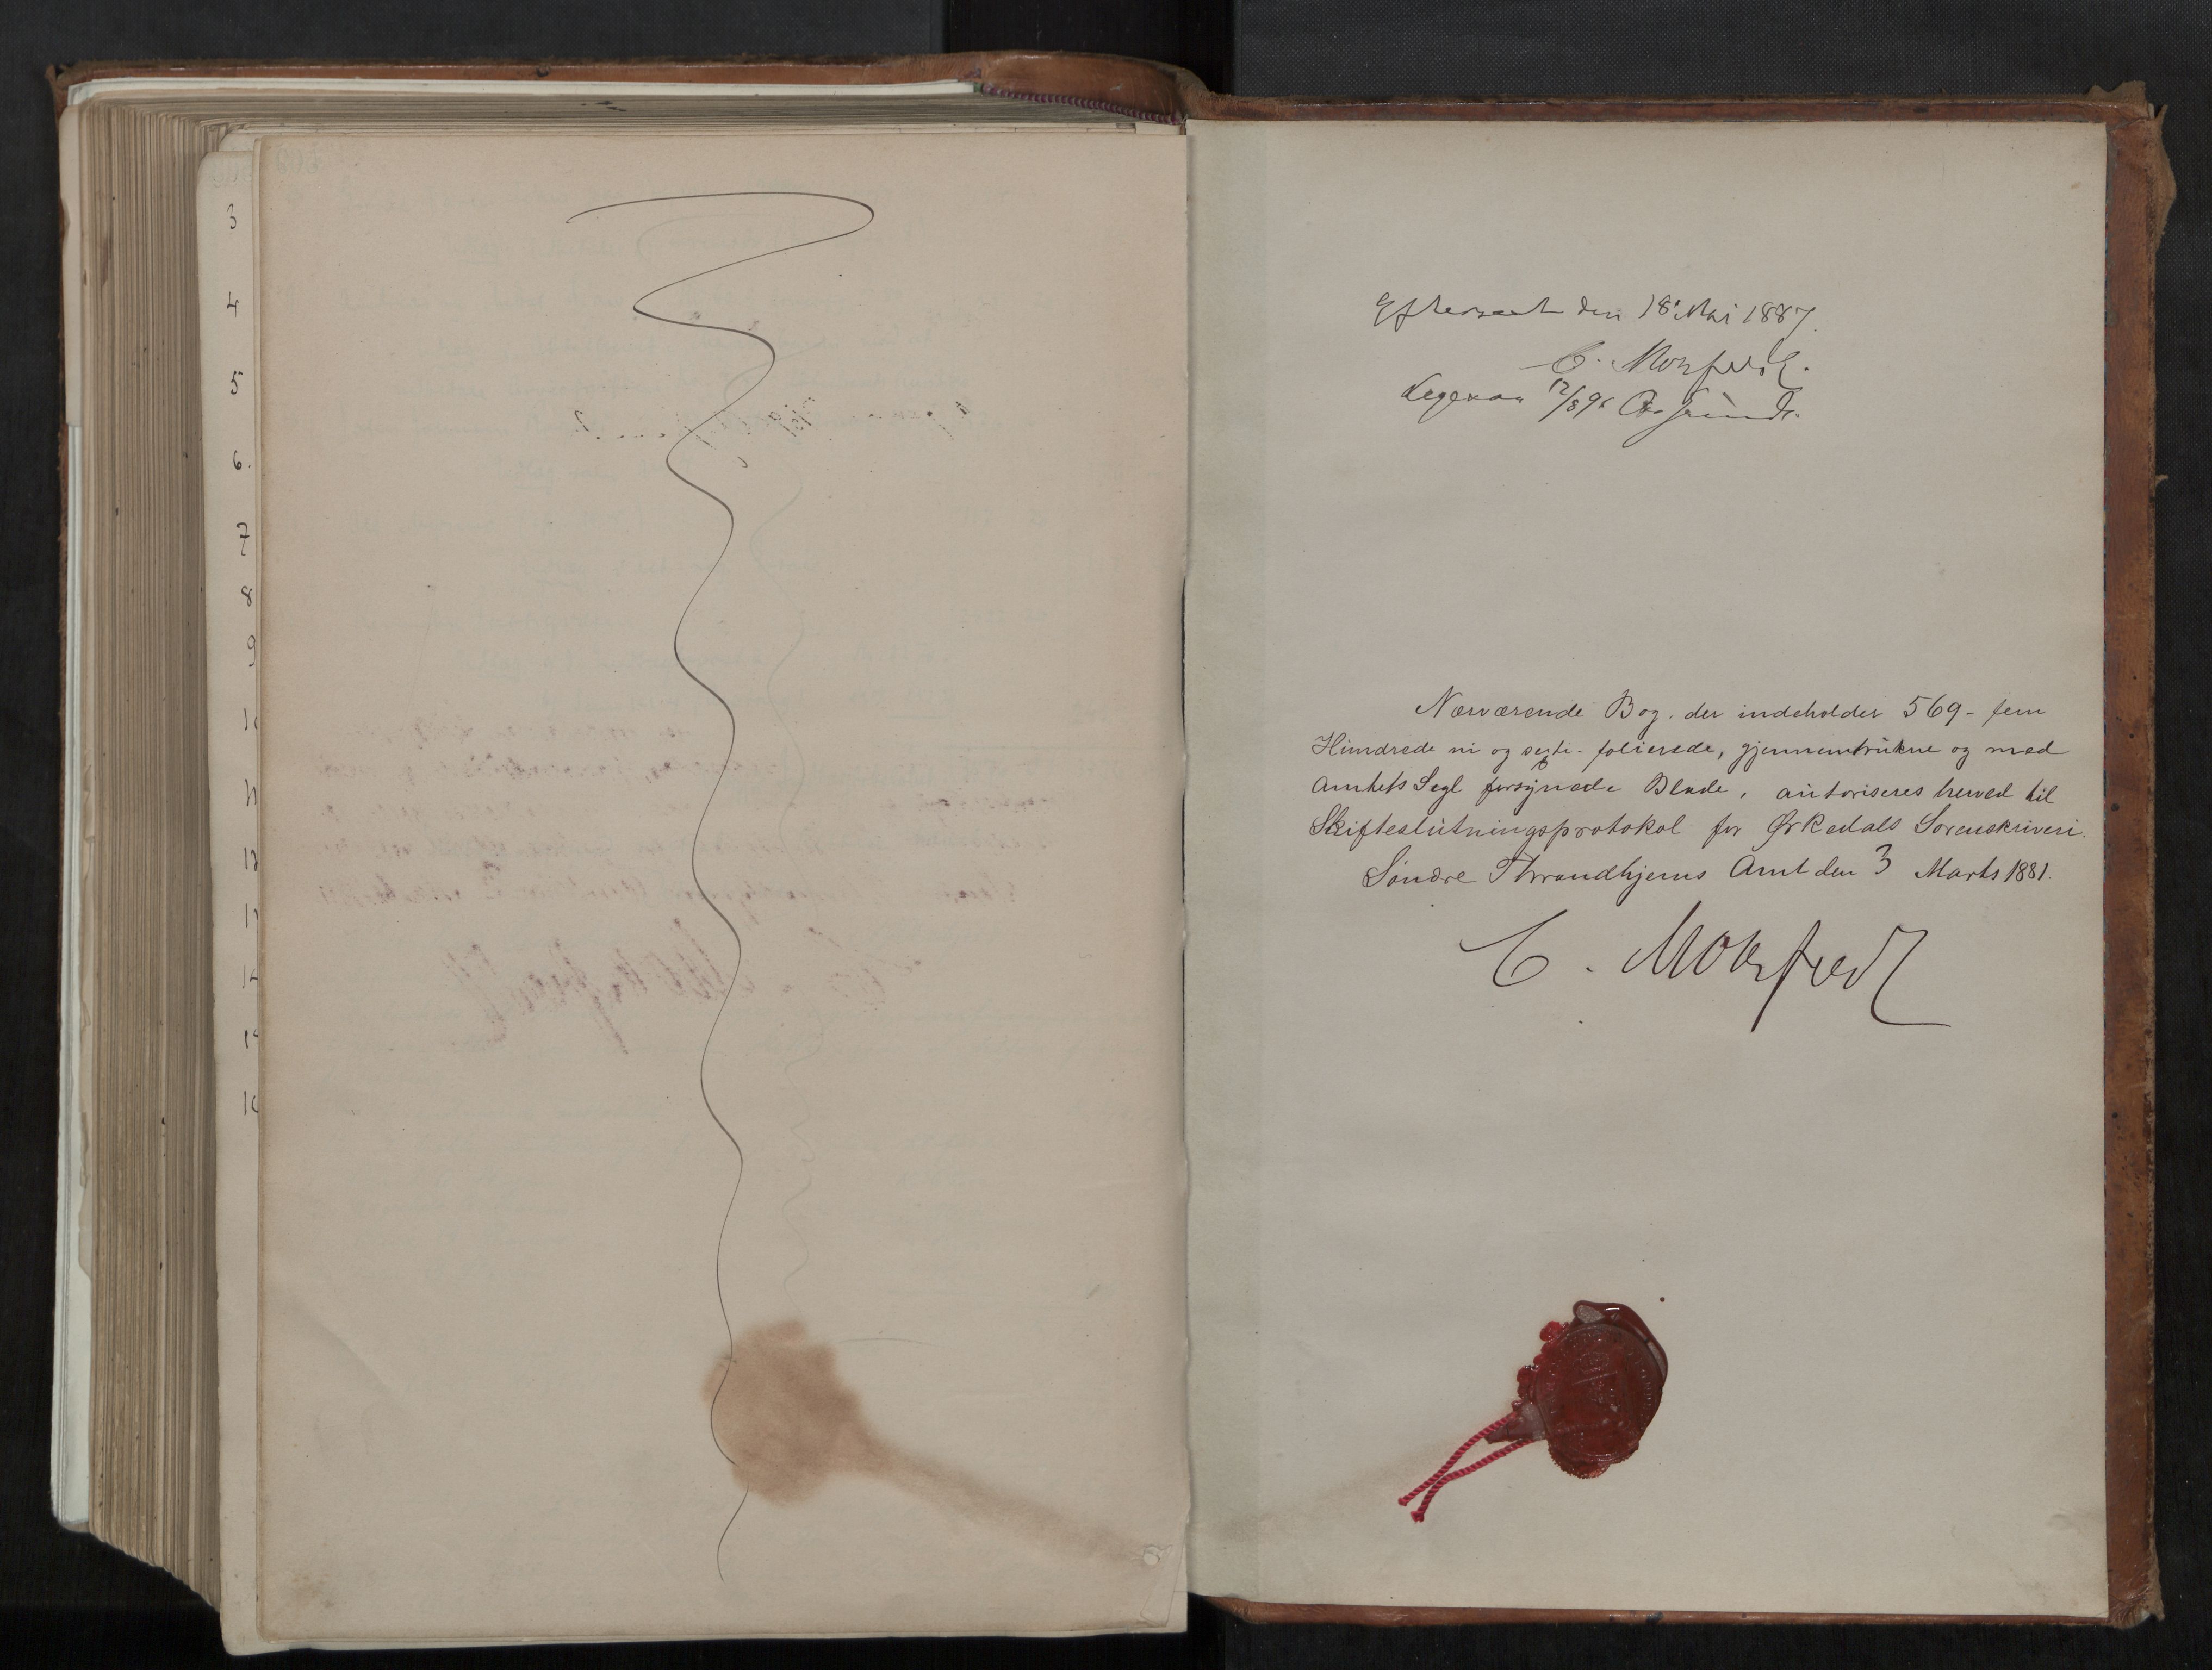 3
4
5
6.
7
8
9
Efterseet den 18 Mai 1887.
C. Motzfeldt.
Ligesaa 12/8 96
Nærværende Bog, der indeholder 569 - fem
Hundrede ni og sexti - folierede, gjennemtrukne og med
Amtets Segl forsynede Blade, autoriseres herved til
Skifteslutningsprotokol for Ørkedals Sorenskriveri.
Søndre Throndhjems Amt den 3 Marts 1881.
C. Motzfeldt